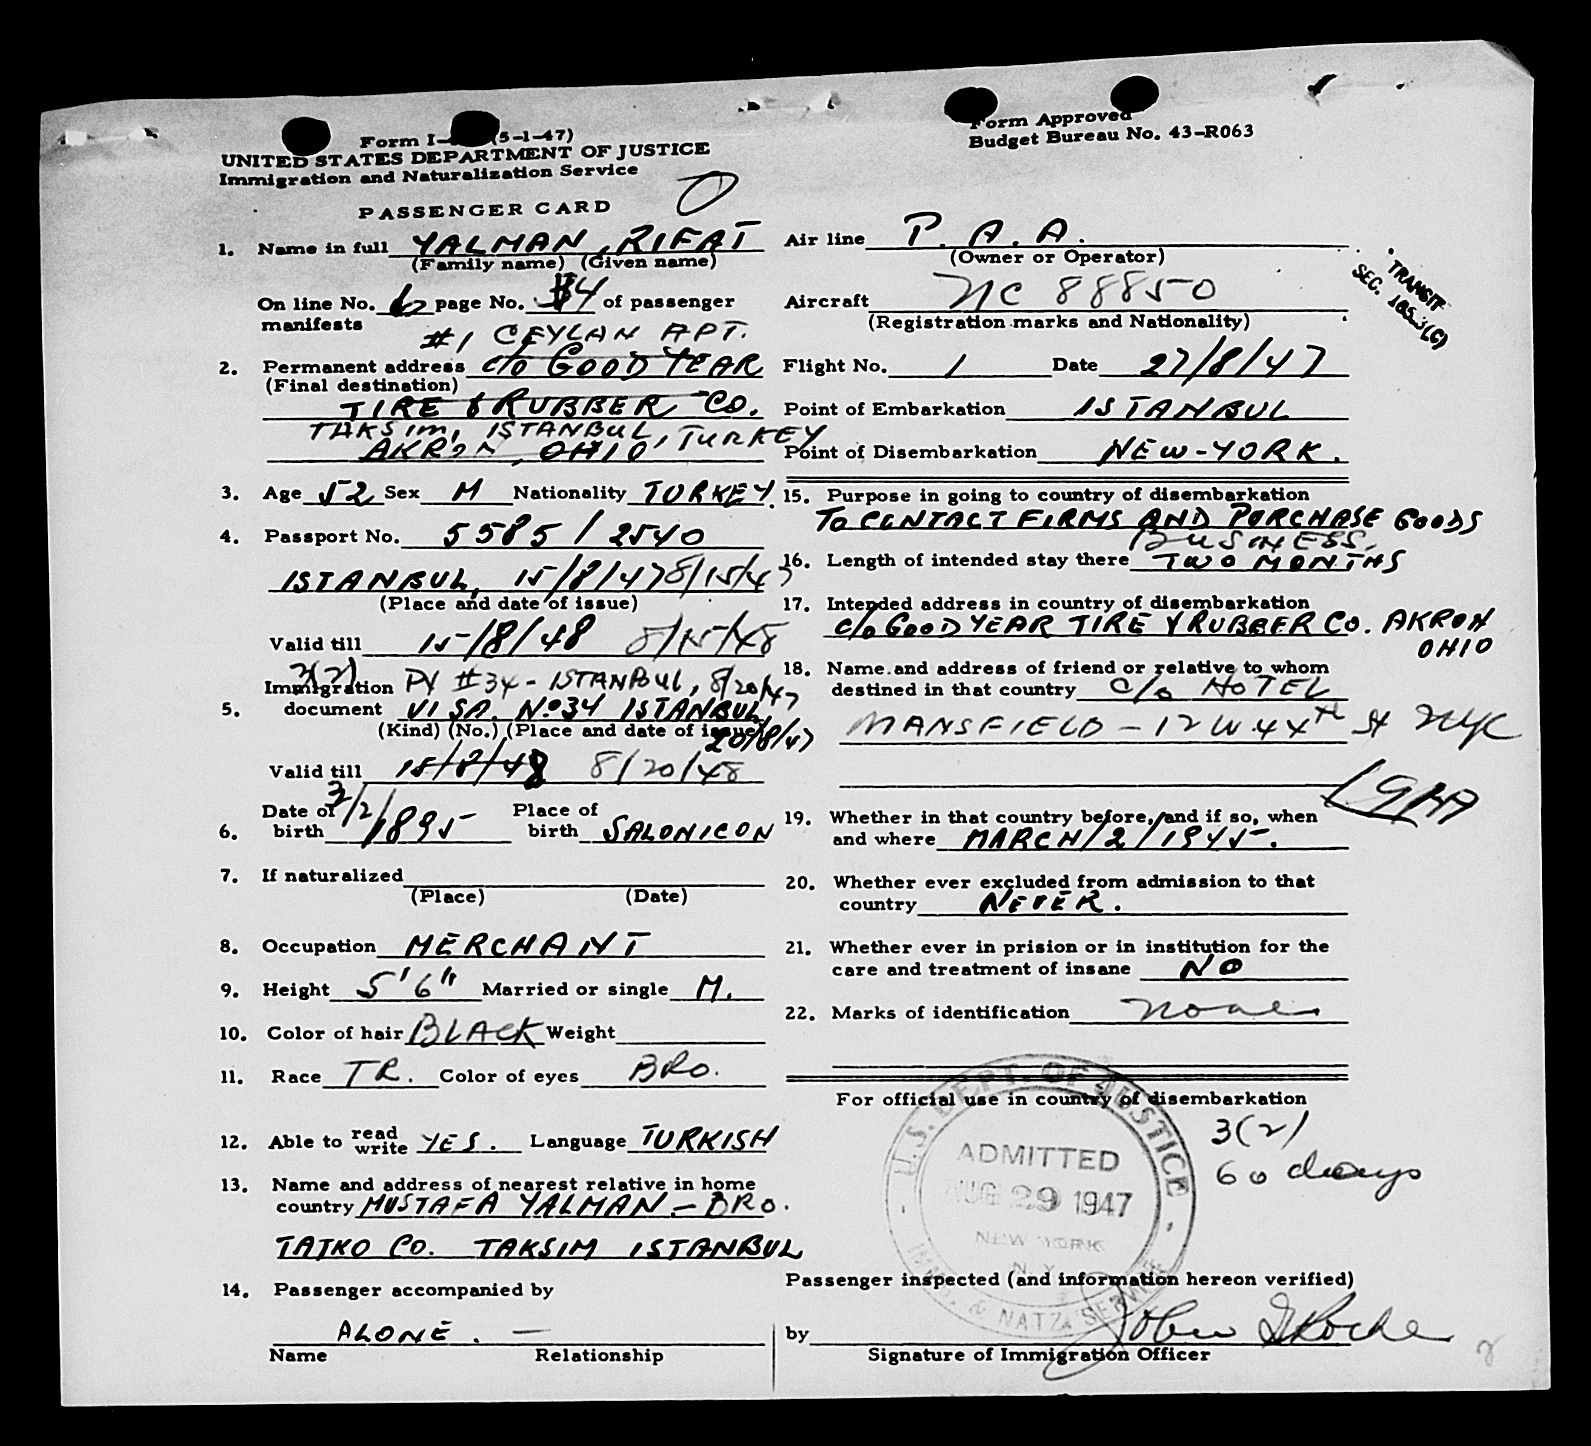 Form I- (5-1-47)
UNITED STATES DEPARTMENT OF JUSTICE
Immigration and Naturalization Service
PASSENGER CARD
Form Approved
Budget Bureau No. 43-R063
1. Name in full YALMAN, RIFAT
(Family name) (Given name)
On line No. 6 page No. 4 of passenger
manifests
#1 CEYLAN APT.
2. Permanent address c/o GOOD YEAR
(Final destination)
TIRE & RUBBER CO.
TAKSIM, ISTANBUL, TURKEY
AKRON, OHIO
3. Age 52 Sex M Nationality TURKEY.
4. Passport No. 5585/2540
ISTANBUL, 15/8/47 8/15/47
(Place and date of issue)
Valid till 15/8/48 8/15/48
3(2)
Immigration PV #34 - ISTANBUL, 8/20/47
5. document VISA. No 34 ISTANBUL
(Kind) (No.) (Place and date of issue)
20/8/47
Valid till 15/8/48 8/20/48
6. Date of birth 3/2/1895 Place of birth SALONICON
7. If naturalized
(Place) (Date)
8. Occupation MERCHANT
9. Height 5'6" Married or single M.
10. Color of hair BLACK Weight
11. Race TR. Color of eyes BRO.
12. Able to read write YES. Language TURKISH
13. Name and address of nearest relative in home
country MUSTAFA YALMAN - BRO.
TATKO CO. TAKSIM ISTANBUL
14. Passenger accompanied by
ALONE. —
Name Relationship
Air line P. A. A.
(Owner or Operator)
Aircraft NC 88850
(Registration marks and Nationality)
TRANSIT
SEC. 165.3(C)
Flight No. 1 Date 27/8/47
Point of Embarkation ISTANBUL
Point of Disembarkation NEW-YORK.
15. Purpose in going to country of disembarkation
TO CONTACT FIRMS AND PURCHASE GOODS
BUSINESS.
16. Length of intended stay there TWO MONTHS
17. Intended address in country of disembarkation
c/o GOODYEAR TIRE & RUBBER CO. AKRON
OHIO
18. Name and address of friend or relative to whom
destined in that country c/o HOTEL
MANSFIELD - 12 W. 44th St NYC
LGAA
19. Whether in that country before, and if so, when
and where MARCH/2/1945.
20. Whether ever excluded from admission to that
country NEVER.
21. Whether ever in prision or in institution for the
care and treatment of insane NO
22. Marks of identification none
For official use in country of disembarkation
3(2)
60 days
U.S. DEPT. OF JUSTICE
ADMITTED
AUG 29 1947
NEW YORK
N.Y.
IMM. & NATZ. SERVICE
Passenger inspected (and information hereon verified)
by
Signature of Immigration Officer